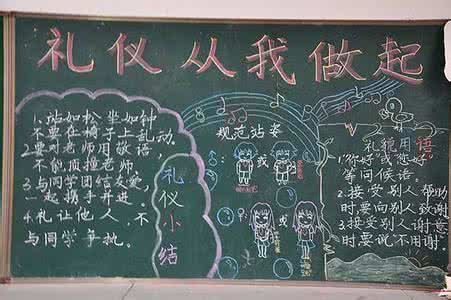 礼仪从我做起
1、站如松坐如钟
不要在椅子上乱动。
2、要对老师用敬语,
不能顶撞老师。
3、与同学团结友爱,
一起携手并进。
4、礼让他人,不
与同学争执。
礼仪小结
规范站姿
或
或
礼貌用语
1、"你好"或"您好"
等问候语。
2、接受别人帮助
时要向别人致谢
3、接受别人谢意
时要说"不用谢"。